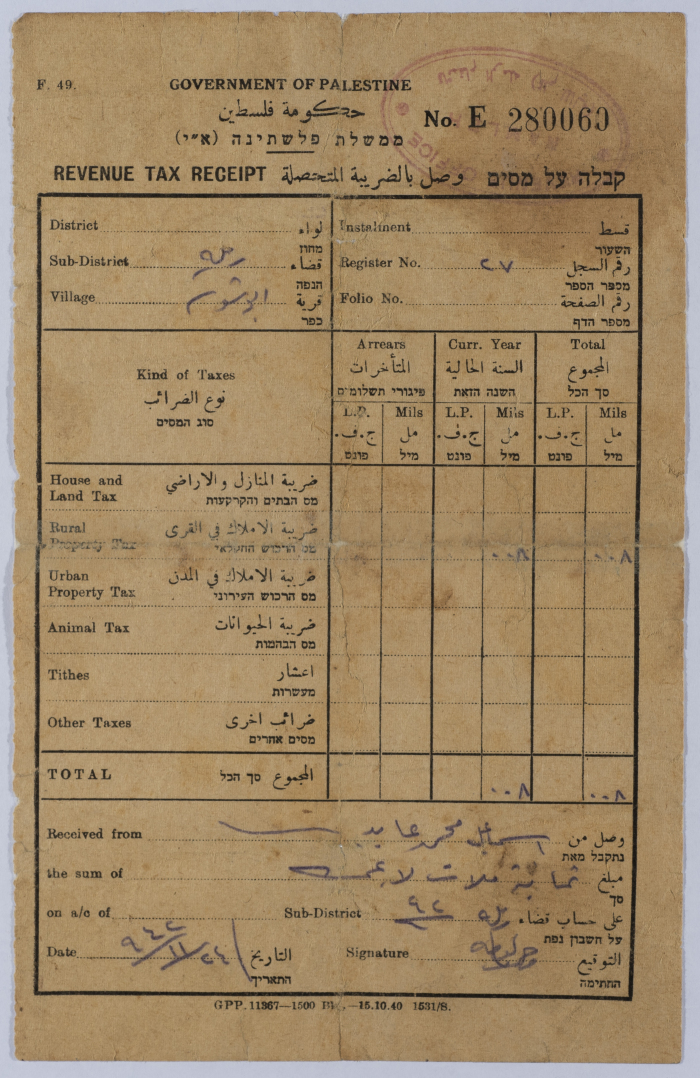 F. 49.
GOVERNMENT OF PALESTINE
حكومة فلسطين
ממשלת פלשתינה (א״י)
No. E 280060
REVENUE TAX RECEIPT وصل بالضريبة المتحصلة קבלה על מסים
District لواء
מחוז
Sub-District رمله قضاء
הנפה
Village قرية
כפר
Instalment قسط
השעור
Register No. ٢٧ رقم السجل
מספר הספר
Folio No. رقم الصفحة
מספר הדף
Kind of Taxes
نوع الضرائب
סוג המסים
Arrears Curr. Year Total
المتأخرات السنة الحالية المجموع
פיגורי תשלומים השנה הזאת סך הכל
L.P. Mils L.P. Mils L.P. Mils
ج.ف. مل ج.ف. مل ج.ف. مل
פונט מיל פונט מיל פונט מיל
House and ضريبة المنازل والاراضي
Land Tax מס הבתים והקרקעות
Rural ضريبة الاملاك في القرى
Property Tax מס הרכוש החקלאי ٠٠٨ ٠٠٨
Urban ضريبة الاملاك في المدن
Property Tax מס הרכוש העירוני
Animal Tax ضريبة الحيوانات
מס הבהמות
Tithes اعشار
מעשרות
Other Taxes ضرائب اخرى
מסים אחרים
TOTAL המجموع סך הכל ٠٠٨ ٠٠٨
Received from اسماعيل محمد عايد وصل من
נתקבל מאת
the sum of ثمانية ملات لا غير مبلغ
סך
on a/c of Sub-District رمله ٩٢ على حساب قضاء
על חשבון נפת
Date ٩٤٢/١١/٢٤ التاريخ
התאריך
Signature التوقيع
החתימה
GPP. 11367—1500 Bks.—15.10.40 1531/8.